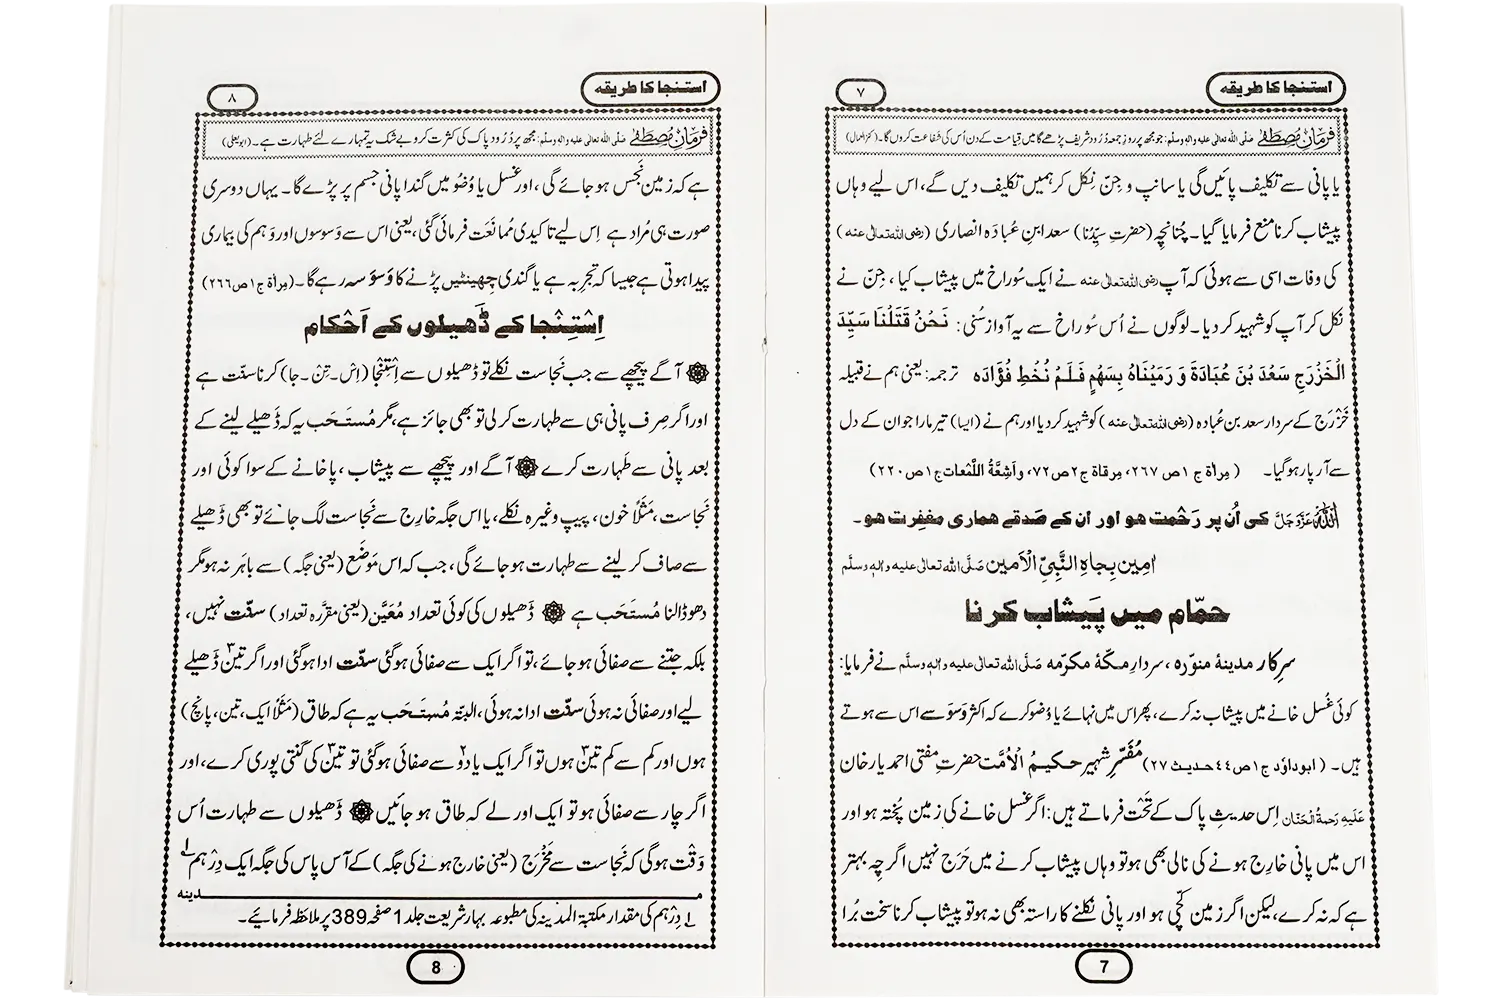 استنجا کا طریقہ
۷
فرمانِ مصطفٰے صَلَّی اللہ تعالٰی علیہ والہٖ وسلَّم: جو مجھ پر روزِ جمعہ دُرُود شریف پڑھے گا میں قِیامت کے دن اُس کی شَفاعت کروں گا۔ (کنز العمال)
یا پانی سے تکلیف پائیں گی یا سانپ و جِنّ نکل کر ہمیں تکلیف دیں گے، اس لیے وہاں
پیشاب کرنا منع فرمایا گیا۔ چُنانچِہ (حضرتِ سیِّدُنا) سعد ابنِ عُبادَہ انصاری (رضی اللہ تعالٰی عنہ)
کی وفات اسی سے ہوئی کہ آپ رضی اللہ تعالٰی عنہ نے ایک سُوراخ میں پیشاب کیا، جِنّ نے
نکل کر آپ کو شہید کر دیا۔ لوگوں نے اُس سُوراخ سے یہ آواز سُنی: نَحْنُ قَتَلْنَا سَیِّدَ
الْخَزْرَجِ سَعْدَ بْنَ عُبَادَةَ وَ رَمَیْنَاہُ بِسَهْمٍ فَلَمْ نُخْطِ فُؤَادَہ ترجمہ: یعنی ہم نے قبیلہ
خَزْرَج کے سردار سعد بن عُبادہ (رضی اللہ تعالٰی عنہ) کو شہید کر دیا اور ہم نے (ایسا) تیر مارا جو ان کے دل
سے آر پار ہو گیا۔ (مِراٰة ج ۱ ص ۲۶۷، مِرقاة ج ۲ ص ۷۲، و اَشِعَّةُ اللَّمْعات ج ۱ ص ۲۲۰)
اللہ عَزَّوَجَلَّ کی اُن پر رَحْمت ہو اور ان کے صَدقے ہماری مغفِرت ہو۔
اٰمِین بِجاہِ النَّبِیِّ الْاَمین صَلَّی اللہ تعالٰی علیہ والہٖ وسلَّم
حمّام میں پَیشاب کرنا
سرکارِ مدینۂ منوّرہ، سردارِ مکّۂ مکرّمہ صَلَّی اللہ تعالٰی علیہ والہٖ وسلَّم نے فرمایا:
کوئی غُسل خانے میں پیشاب نہ کرے، پھر اس میں نہائے یا وُضو کرے کہ اکثر وَسوَسے اس سے ہوتے
ہیں۔ (ابوداوٗد ج ۱ ص ۴۴ حدیث ۲۷) مُفَسِّرِ شہیر حکیمُ الْاُمَّت حضرتِ مفتی احمد یار خان
عَلَیہِ رَحمۃُ الْحَنّان اِس حدیثِ پاک کے تَحت فرماتے ہیں: اگر غسل خانے کی زمین پُختہ ہو اور
اس میں پانی خارِج ہونے کی نالی بھی ہو تو وہاں پیشاب کرنے میں حَرَج نہیں اگرچِہ بہتر
ہے کہ نہ کرے، لیکن اگر زمین کچّی ہو اور پانی نکلنے کا راستہ بھی نہ ہو تو پیشاب کرنا سخت بُرا
7
استنجا کا طریقہ
۸
فرمانِ مصطفٰے صَلَّی اللہ تعالٰی علیہ والہٖ وسلَّم: مجھ پر دُرُود پاک کی کثرت کرو بے شک یہ تمہارے لئے طہارت ہے۔ (ابو یعلٰی)
ہے کہ زمین نَجِس ہو جائے گی، اور غسل یا وُضُو میں گندا پانی جسم پر پڑے گا۔ یہاں دوسری
صورت ہی مُراد ہے اِس لیے تاکیدی مُمانَعَت فرمائی گئی، یعنی اس سے وَسوسوں اور وَہم کی بیماری
پیدا ہوتی ہے جیسا کہ تجرِبہ ہے یا گندی چِھینٹیں پڑنے کا وَسوَسہ رہے گا۔ (مِراٰة ج ۱ ص ۲۶۶)
اِسْتِنْجا کے ڈَھیلوں کے اَحْکام
آگے پیچھے سے جب نَجاست نکلے تو ڈھیلوں سے اِسْتِنْجا (اِسْ۔تِنْ۔جا) کرنا سنّت ہے
اور اگر صِرف پانی ہی سے طہارت کر لی تو بھی جائز ہے، مگر مُستَحَب یہ کہ ڈھیلے لینے کے
بعد پانی سے طَہارت کرے آگے اور پیچھے سے پیشاب، پاخانے کے سوا کوئی اور
نَجاست، مَثَلًا خون، پیپ وغیرہ نکلے، یا اس جگہ خارِج سے نَجاست لگ جائے تو بھی ڈَھیلے
سے صاف کر لینے سے طہارت ہو جائے گی، جب کہ اس مَوضَع (یعنی جگہ) سے باہَر نہ ہو مگر
دھو ڈالنا مُستَحَب ہے ڈَھیلوں کی کوئی تعداد مُعَیَّن (یعنی مقرَّرہ تعداد) سنّت نہیں،
بلکہ جتنے سے صفائی ہو جائے، تو اگر ایک سے صفائی ہو گئی سنّت ادا ہو گئی اور اگر تین۳ ڈھیلے
لیے اور صفائی نہ ہوئی سنّت ادا نہ ہوئی، البتّہ مُستَحَب یہ ہے کہ طاق (مَثَلًا ایک، تین، پانچ)
ہوں اور کم سے کم تین۳ ہوں تو اگر ایک یا دو۲ سے صفائی ہو گئی تو تین۳ کی گنتی پوری کرے، اور
اگر چار سے صفائی ہو تو ایک اور لے کہ طاق ہو جائیں ڈَھیلوں سے طہارت اُس
وَقْت ہو گی کہ نَجاست سے مَخْرَج (یعنی خارِج ہونے کی جگہ) کے آس پاس کی جگہ ایک دِرْہم ۱
مدینہ
۱ دِرْہَم کی مقدار مکتبۃ المدینہ کی مطبوعہ بہارِ شریعت جلد 1 صفحہ 389 پر ملاحَظہ فرمائیے۔
8